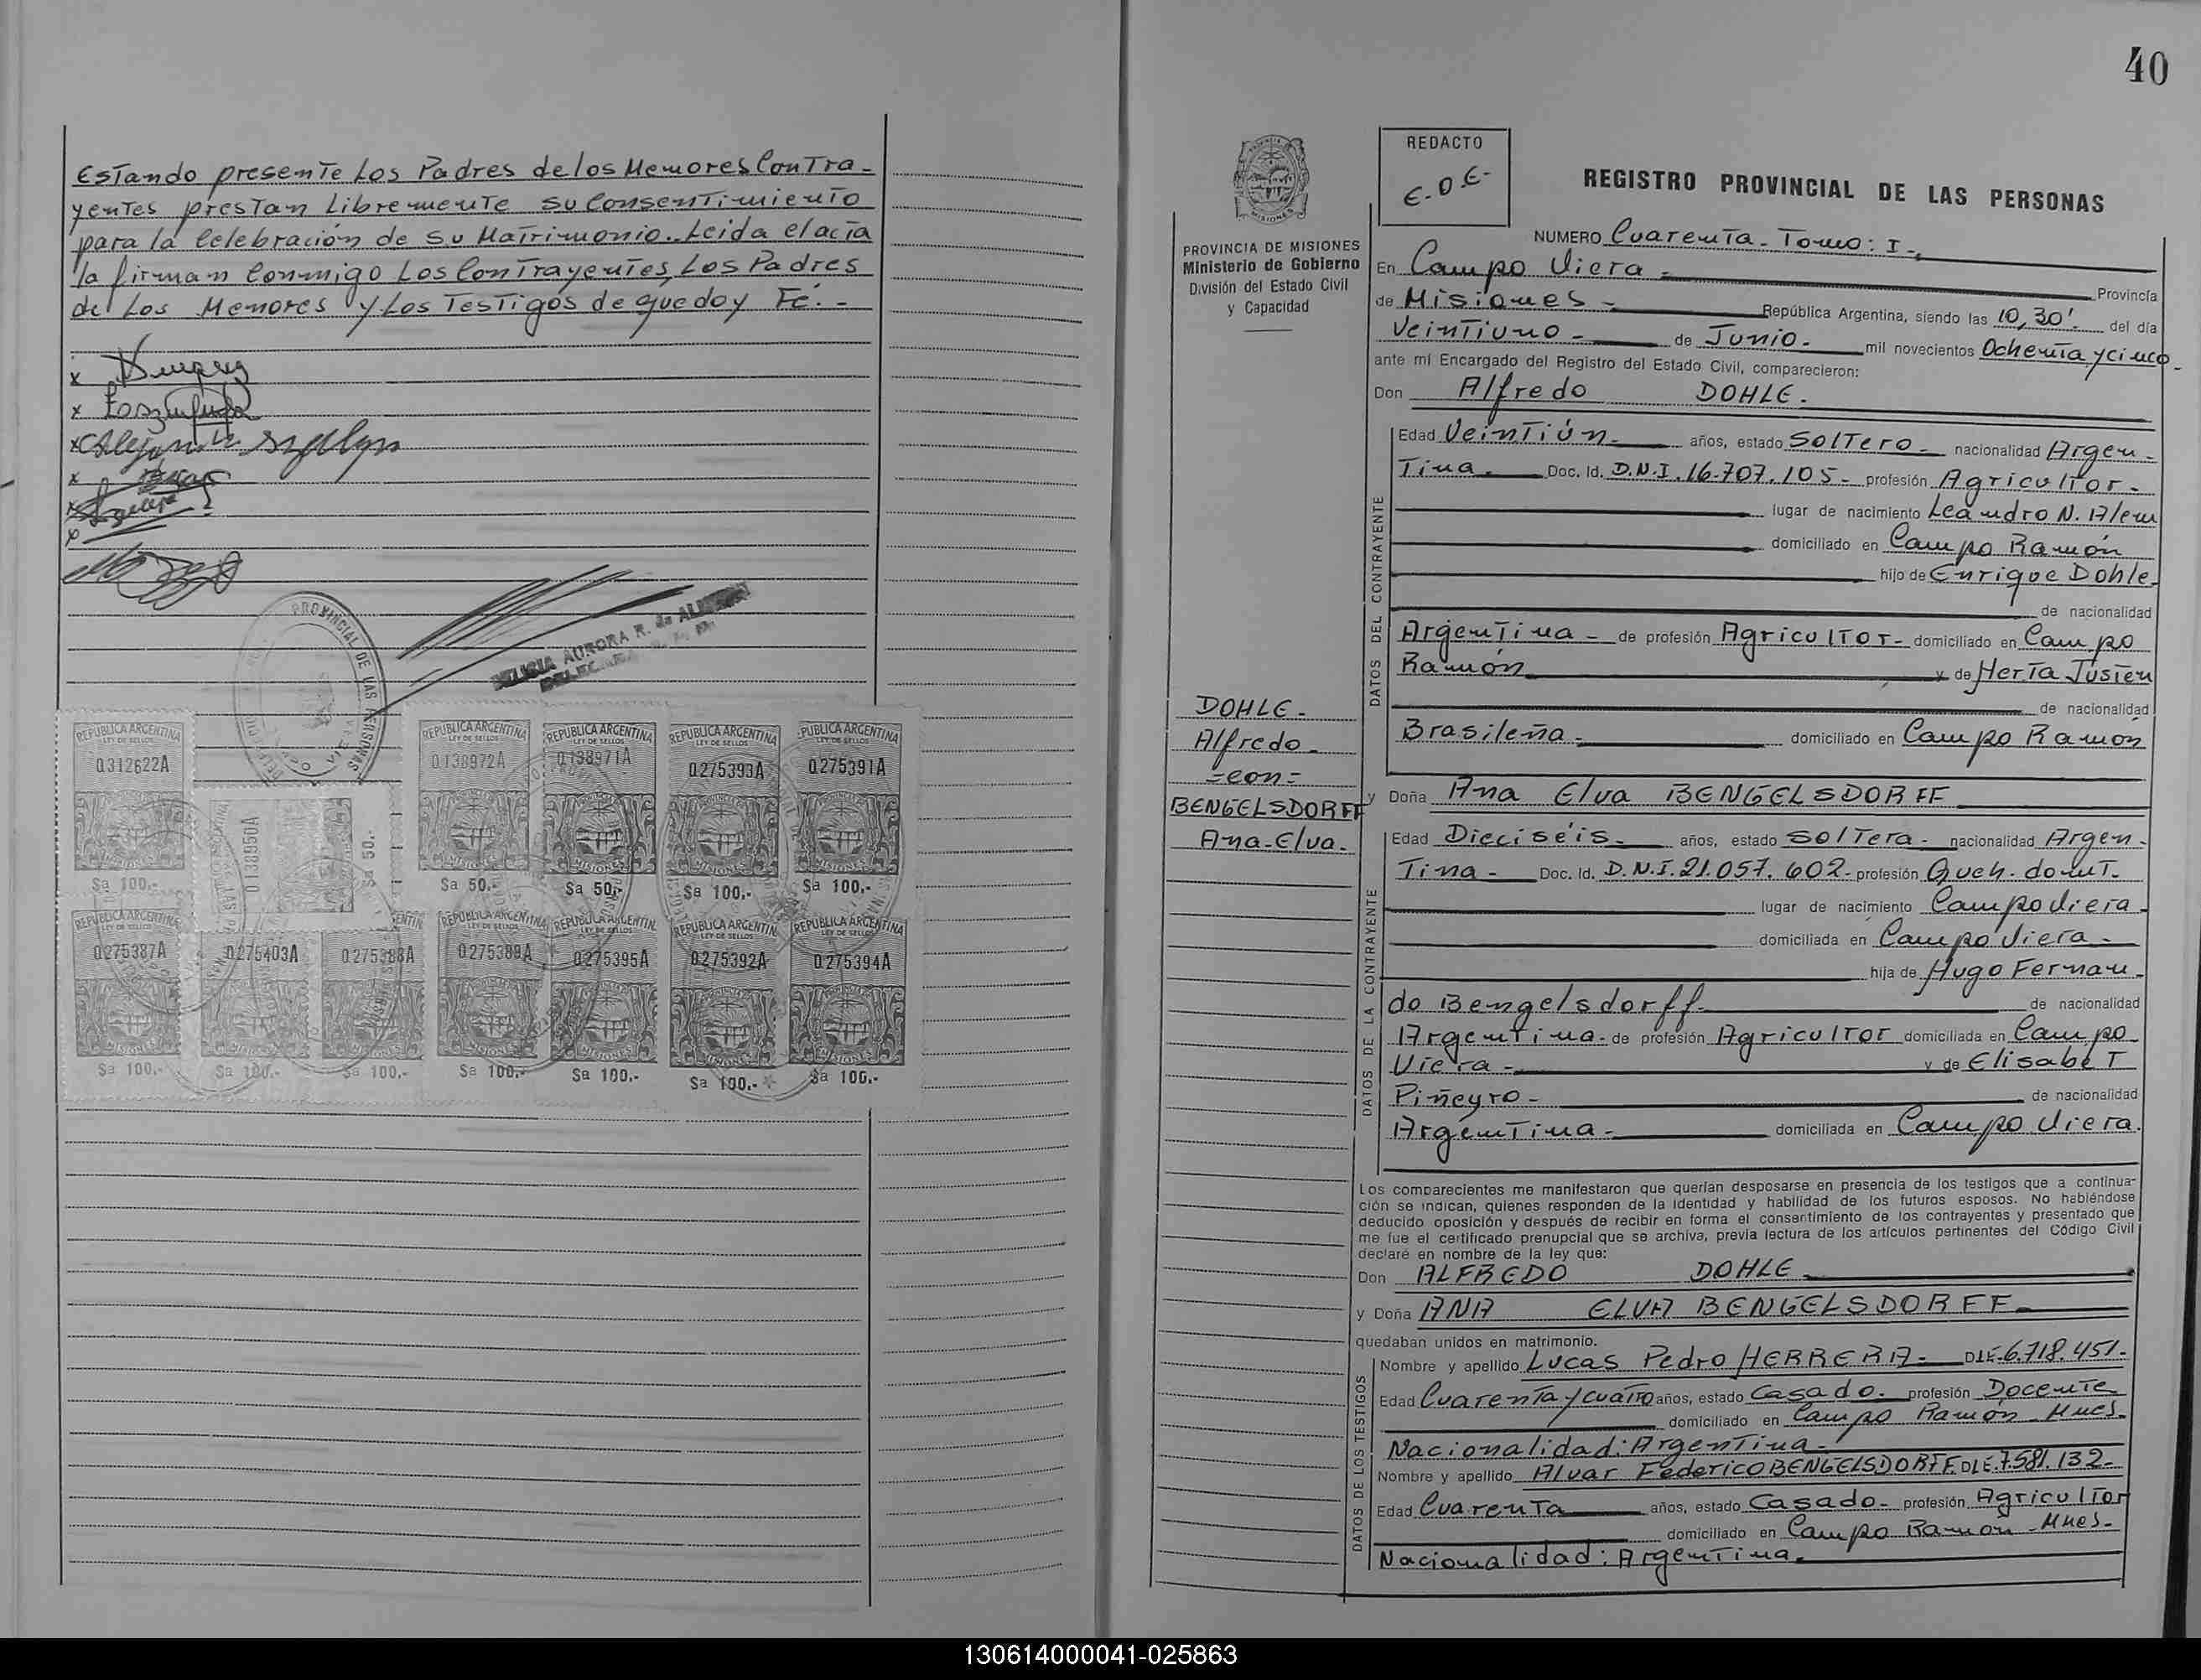 Estando presente Los Padres de los Menores Contra-
yentes prestan Libremente su Consentimiento
para la Celebración de su Matrimonio.. Leida el acta
la firman Conmigo Los Contrayentes, Los Padres
de Los Menores y Los Testigos de que doy Fé.-
x
x
x
x
x
x
PROVINCIAL DE LAS PERSONAS
AURORA R. de
REPUBLICA ARGENTINA
LEY DE SELLOS
0312622A
MISIONES
$a 100.-
0138950A
$a 50.-
REPUBLICA ARGENTINA
LEY DE SELLOS
0138972A
MISIONES
$a 50.-
REPUBLICA ARGENTINA
LEY DE SELLOS
0138971A
MISIONES
$a 50.-
REPUBLICA ARGENTINA
LEY DE SELLOS
0275393A
MISIONES
$a 100.-
REPUBLICA ARGENTINA
LEY DE SELLOS
0275391A
MISIONES
$a 100.-
REPUBLICA ARGENTINA
LEY DE SELLOS
0275387A
MISIONES
$a 100.-
0275403A
MISIONES
$a 100.-
0275388A
MISIONES
$a 100.-
REPUBLICA ARGENTINA
LEY DE SELLOS
0275389A
MISIONES
$a 100.-
REPUBLICA ARGENTINA
LEY DE SELLOS
0275395A
MISIONES
$a 100.-
REPUBLICA ARGENTINA
LEY DE SELLOS
0275392A
MISIONES
$a 100.-
REPUBLICA ARGENTINA
LEY DE SELLOS
0275394A
MISIONES
$a 100.-
40
PROVINCIA DE MISIONES
Ministerio de Gobierno
División del Estado Civil
y Capacidad
REDACTO
E.O.E.
REGISTRO PROVINCIAL DE LAS PERSONAS
NUMERO Cuarenta - Tomo: I -
En Campo Viera - Provincia
de Misiones - República Argentina, siendo las 10,30'. del día
Veintiuno - de Junio - mil novecientos Ochenta y cinco -
ante mí Encargado del Registro del Estado Civil, comparecieron:
Don Alfredo DOHLE.
DATOS DEL CONTRAYENTE
Edad Veintiún - años, estado Soltero - nacionalidad Argen-
Tina - Doc. Id. D.N.I. 16.707.105 - profesión Agricultor -
lugar de nacimiento Leandro N. Alem
domiciliado en Campo Ramón
hijo de Enrique Dohle
de nacionalidad
Argentina - de profesión Agricultor - domiciliado en Campo
Ramón y de Herta Justen
de nacionalidad
Brasileña - domiciliado en Campo Ramón
DOHLE -
Alfredo -
=con=
BENGELSDORFF
Ana-Elva.
y Doña Ana Elva BENGELSDORFF
DATOS DE LA CONTRAYENTE
Edad Dieciséis - años, estado Soltera - nacionalidad Argen-
Tina - Doc. Id. D.N.I. 21.057.602 - profesión Queh. domt.
lugar de nacimiento Campo Viera -
domiciliada en Campo Viera -
hija de Hugo Fernan-
do Bengelsdorff - de nacionalidad
Argentina - de profesión Agricultor domiciliada en Campo
Viera - y de Elisabet
Piñeyro - de nacionalidad
Argentina - domiciliada en Campo Viera.
Los comparecientes me manifestaron que querían desposarse en presencia de los testigos que a continua-
ción se indican, quienes responden de la identidad y habilidad de los futuros esposos. No habiéndose
deducido oposición y después de recibir en forma el consentimiento de los contrayentes y presentado que
me fue el certificado prenupcial que se archiva, previa lectura de los artículos pertinentes del Código Civil
declaré en nombre de la ley que:
Don ALFREDO DOHLE
y Doña ANA ELVA BENGELSDORFF -
quedaban unidos en matrimonio.
DATOS DE LOS TESTIGOS
Nombre y apellido Lucas Pedro HERRERA - DLE-6.718.451-
Edad Cuarenta y cuatro años, estado Casado. profesión Docente
domiciliado en Campo Ramón - Mnes.
Nacionalidad: Argentina -
Nombre y apellido Alvar Federico BENGELSDORFF. DLE. 7.581.132-
Edad Cuarenta años, estado Casado - profesión Agricultor
domiciliado en Campo Ramón - Mnes -
Nacionalidad: Argentina.
130614000041-025863